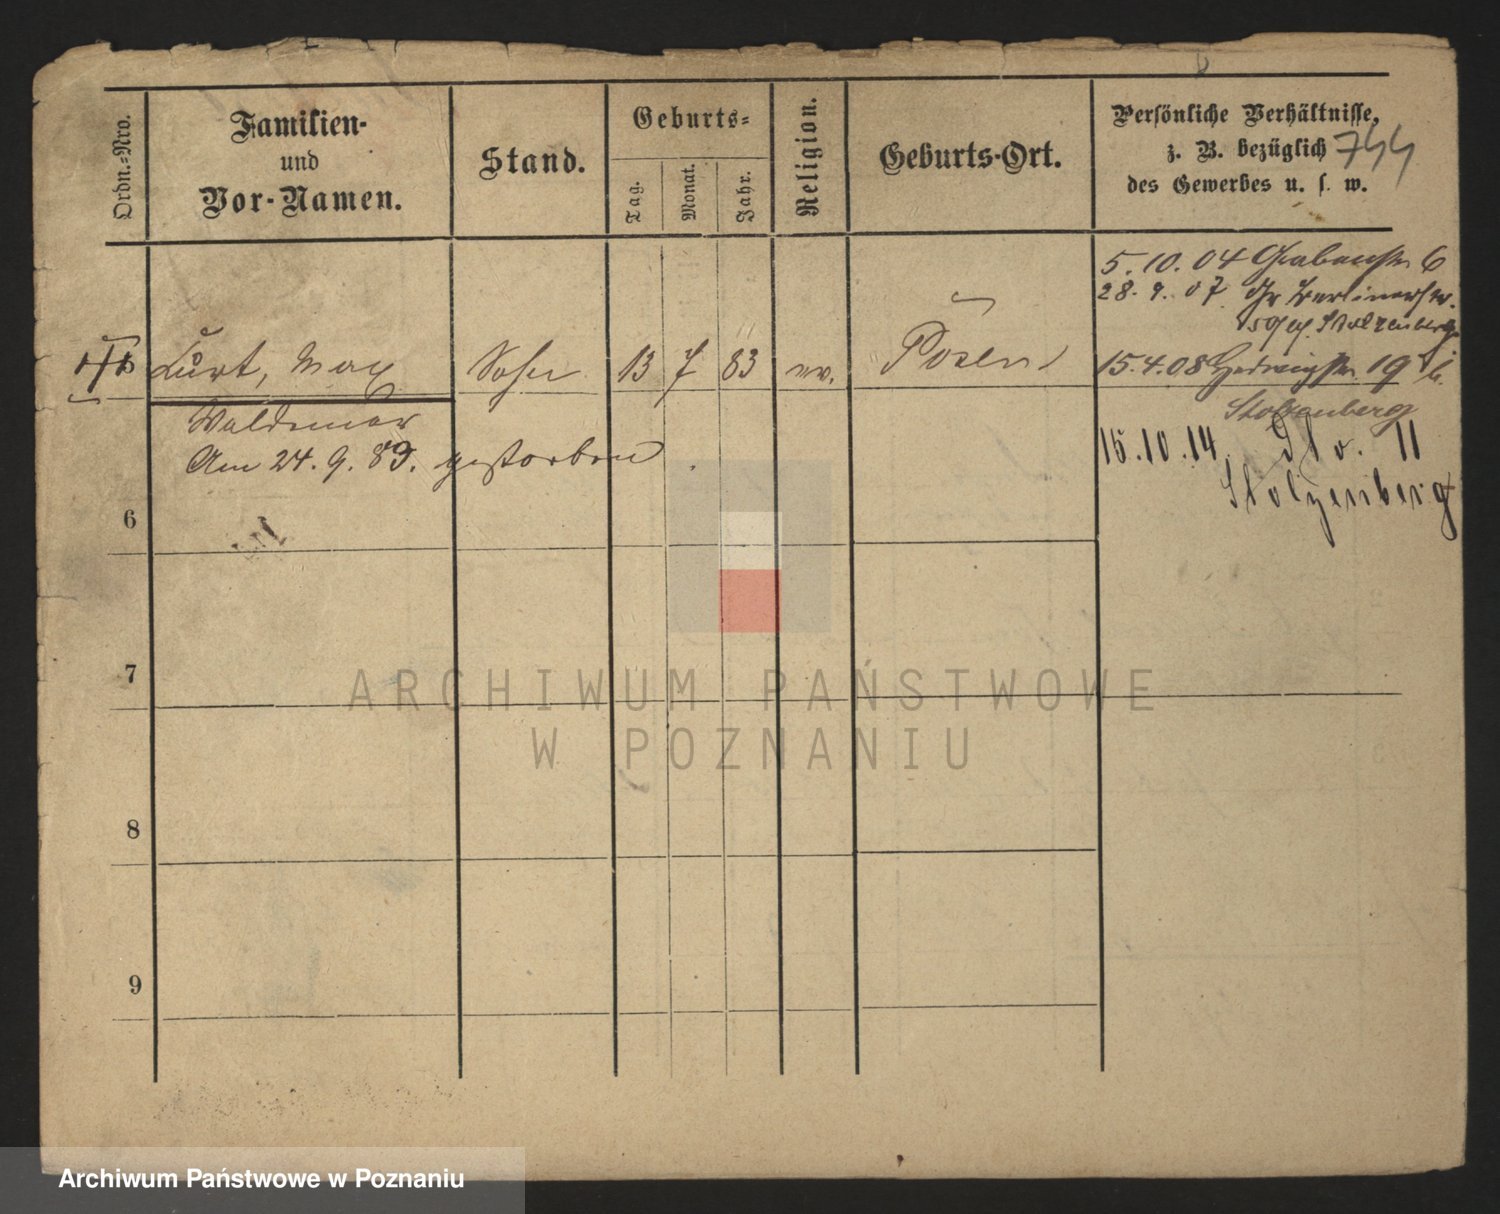 Ordn.-Nro.
Familien-
und
Vor-Namen.
Stand.
Geburts-
Tag.
Monat.
Jahr.
Religion.
Geburts-Ort.
Persönliche Verhältnisse,
z. B. bezüglich 744
des Gewerbes u. s. w.
5. 10. 04 Grabenstr 6
28. 9. 07 Gr Berlinerstr.
b. Stolzenberg
Kurt, Max Sohn 13 7 83 ev. Posen
15. 4. 08 Hedwigstr 19 b.
Stolzenberg
Waldemar
Am 24. 9. 83. gestorben
15. 10. 14. dto. 11
Stolzenberg
6
7
8
9
ARCHIWUM PAŃSTWOWE
W POZNANIU
Archiwum Państwowe w Poznaniu